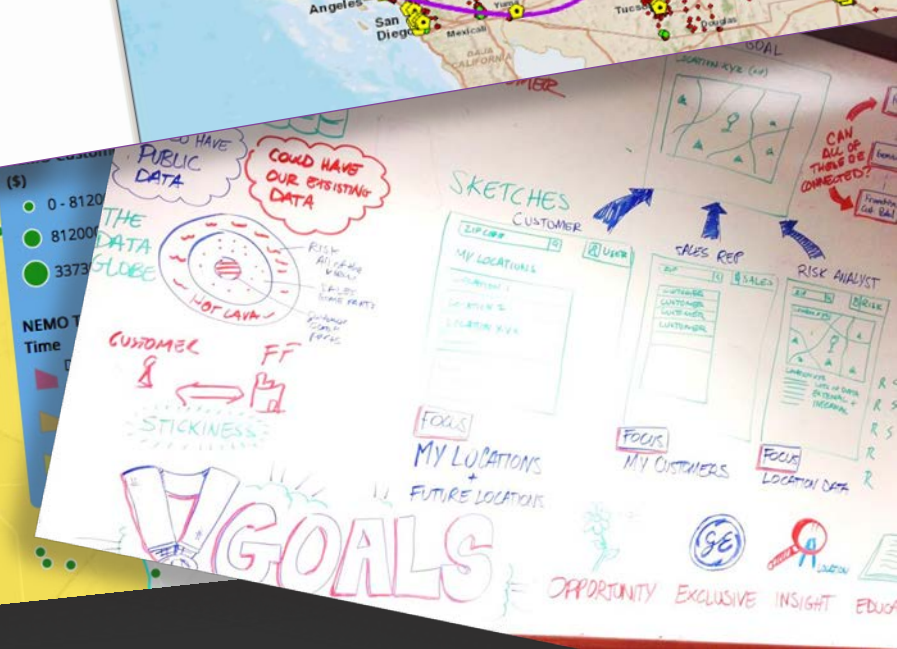 Angeles
San
Diego
Mexicali
Yuma
BAJA
CALIFORNIA
Tucs
Douglas
($)
0 - 8120
81200
3373
NEMO T
Time
HAVE
PUBLIC
DATA
COULD HAVE
OUR EXISTING
DATA
THE
DATA
GLOBE
HOT LAVA
RISK
SALES
CUSTOMER
FF
STICKINESS
SKETCHES
CUSTOMER
ZIP CODE
USER
MY LOCATIONS
LOCATION 1
LOCATION 2
LOCATION XYZ
FOCUS
MY LOCATIONS
+
FUTURE LOCATIONS
GOAL
LOCATION XYZ
SALES REP
ZIP
$ SALES
CUSTOMER
CUSTOMER
CUSTOMER
CUSTOMER
FOCUS
MY CUSTOMERS
RISK ANALYST
ZIP
RISK
LOCATION XYZ
LOTS OF DATA
EXTERNAL +
INTERNAL
FOCUS
LOCATION DATA
CAN
ALL OF
THESE BE
CONNECTED?
R
R S
R S
R
R
GOALS
OPPORTUNITY
GE
EXCLUSIVE
LOCATION
INSIGHT
EDUCA